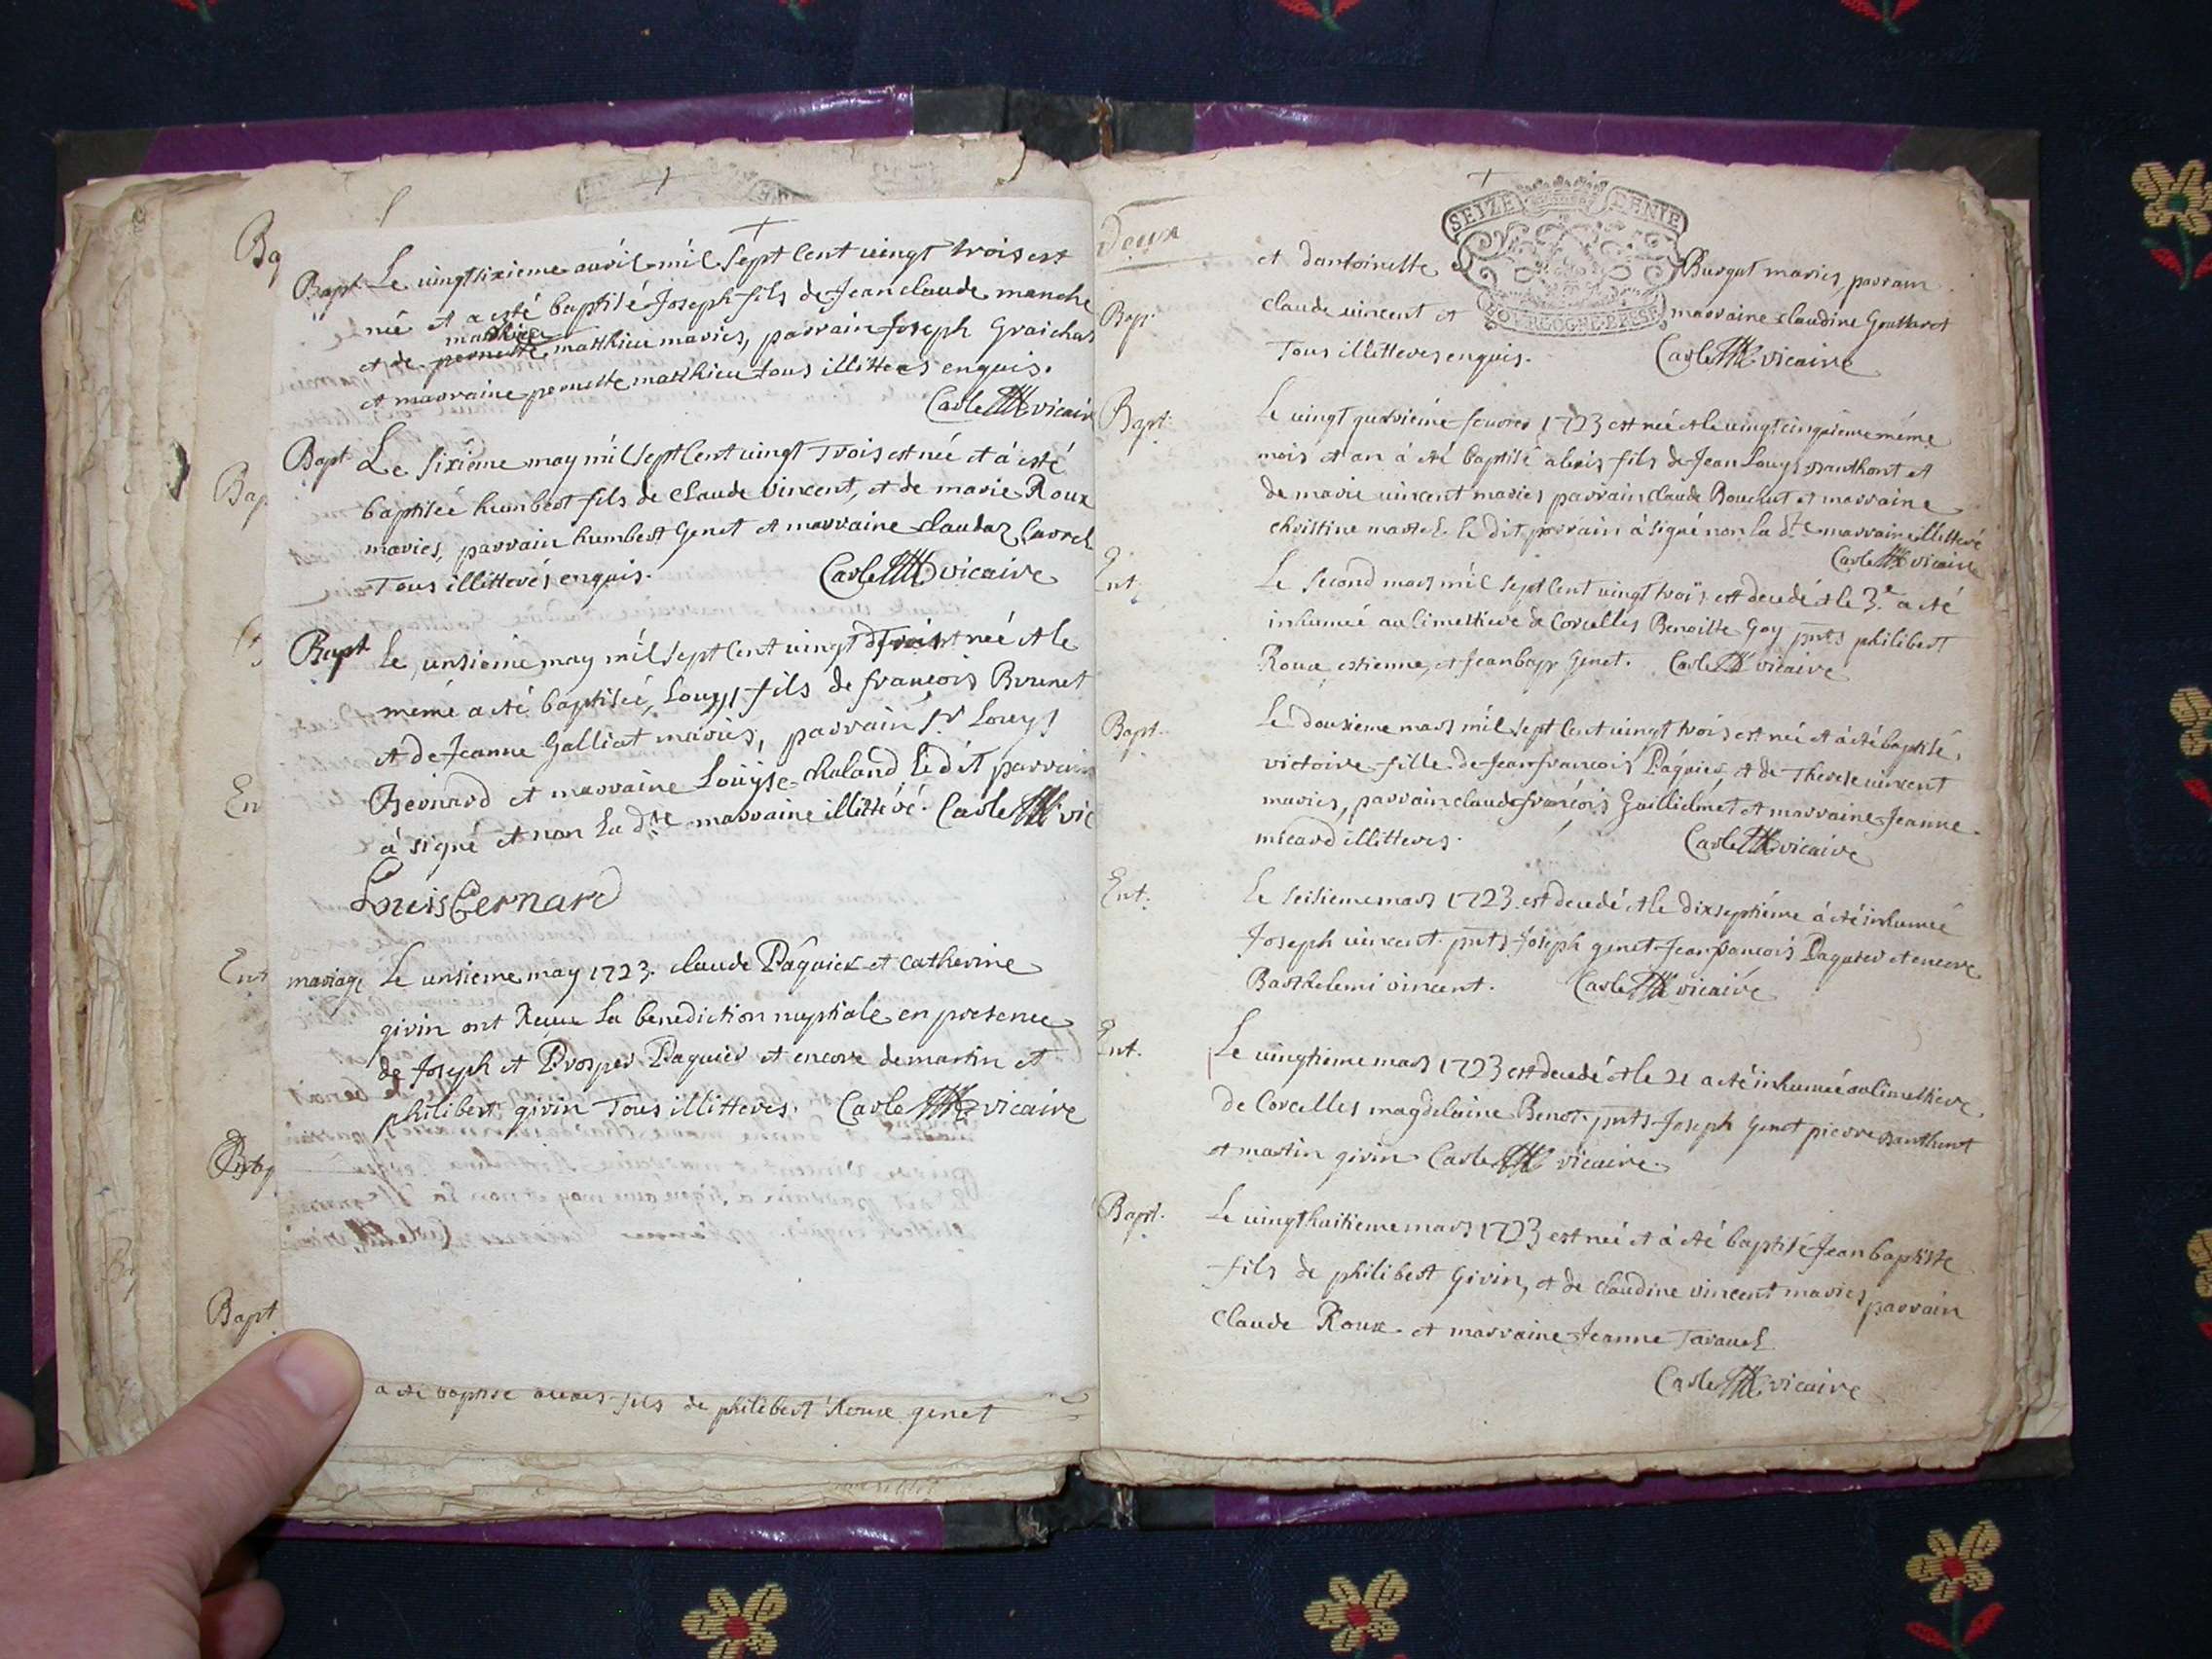 Bapt Le vingtsixieme avril mil sept cent vingt trois est
née et a esté baptisé Joseph fils de Jean claude manche
mathieu
et de pernette mathieu mariés, parrain Joseph Graichas
et marraine pernette mathieu tous illitteres enquis.
Carle vicaire
Bapt Le sixiême may mil sept cent vingt trois est née et à esté
baptiséé humbert fils de claude vincent, et de marie Roux
mariés, parrain humbert Genet et marraine claudaz Carrel
Tous illitterés enquis. Carle vicaire
Bapt Le unsieme may mil sept cent vingt trois est née et le
méme a eté baptiséé, Louys fils de françois Brunet
et de Jeanne Galliat mariés, parrain Sr. Louys
Bernard et marraine Loüyse chaland le dit parrain
à signé et non la dte marraine illittéré. Carle vic
Louis Bernard
mariage Le unsieme may 1723. claude Páquier et catherine
girin ont Receue la benediction nuptiale en presence
de Joseph et Prosper Paquier et encore de martin et
philibert girin Tous illitteres. Carle vicaire
Bapt
a eté baptisé fils de philibert Roux genet
Deux
SEIZE DENIE
BOURGOGNE BRESSE
et dantoinette Burgat mariés, parrain
Bapt. claude vincent et marraine claudine Gouttaret
Tous illitteres enquis. Carle vicaire
Bapt. Le vingt quatriéme fevrier 1723 est née et le vingt cinquieme méme
mois et an à eté baptisé alexis fils de Jean Louys panthont et
de marie vincent mariés parrain claude Bouchut et marraine
christine martel le dit parrain à signé non la dte marraine illitteré
Carle vicaire
Ent. Le second mars mil sept cent vingt trois est decedé et le 3.e a eté
inhumée au cimettiere de Corcelles Benoitte Goy pnts philibert
Roux, estienne, et Jean bap. Genet. Carle vicaire
Bapt. Lé dousieme mars mil sept cent vingt trois est née et à eté baptisé,
victoire fille de Jean francois Páquier, et de Therese vincent
mariés, parrain claude françois Guillielmet et marraine Jeanne
micard illitteres. Carle vicaire
Ent. Le seisieme mars 1723. est decedé et le dixseptiéme à eté inhumeé
Joseph vincent. pnts Joseph genet Jean francois Paquier et encore
Barthelemi vincent. Carle vicaire
Ent. Le vingtieme mars 1723 est decedé et le 21 a eté inhumeé au cimettiere
de Corcelles magdelaine Benot. pnts Joseph Genet pierre panthont
et martin girin Carle vicaire.
Bapt. Le vingt huitieme mars 1723 est née et à eté baptisé Jean baptiste
fils de philibert Girin, et de claudine vincent mariés parrain
claude Roux et marraine Jeanne Taravel
Carle vicaire